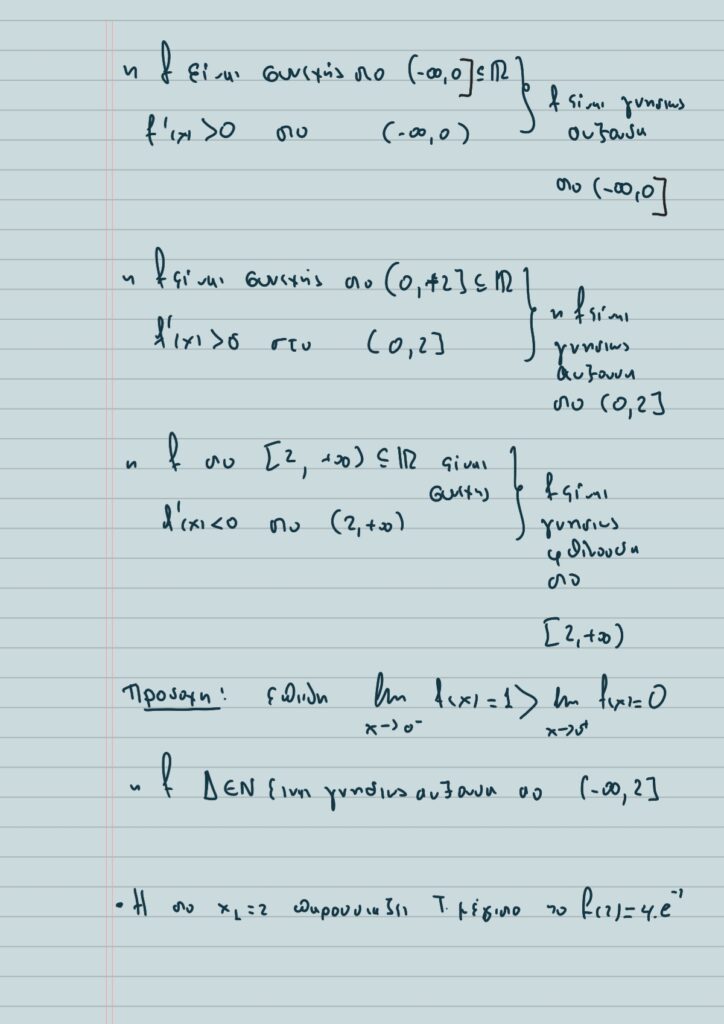 η f είναι συνεχής στο (-∞,0]⊆ℝ
f'(x)>0 στο (-∞,0)
f είναι γνησίως
αύξουσα
στο (-∞,0]
η f είναι συνεχής στο (0,+2]⊆ℝ
f'(x)>0 στο (0,2]
η f είναι
γνησίως
αύξουσα
στο (0,2]
η f στο [2,+∞)⊆ℝ είναι
συνεχής
f'(x)<0 στο (2,+∞)
f είναι
γνησίως
φθίνουσα
στο
[2,+∞)
Προσοχή: επειδή lim f(x)=1> lim f(x)=0
x→0⁻ x→0⁺
η f ΔΕΝ είναι γνησίως αύξουσα στο (-∞,2]
• Η στο x₁=2 παρουσιάζει Τ. μέγιστο το f(2)=4.e⁻¹